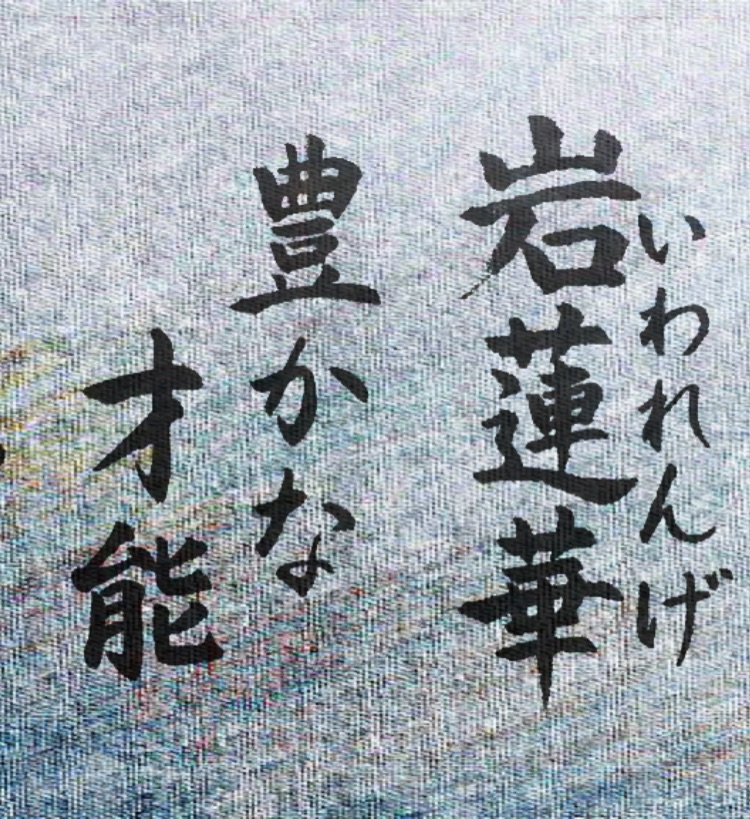 いわれんげ
岩蓮華
豊かな
才能